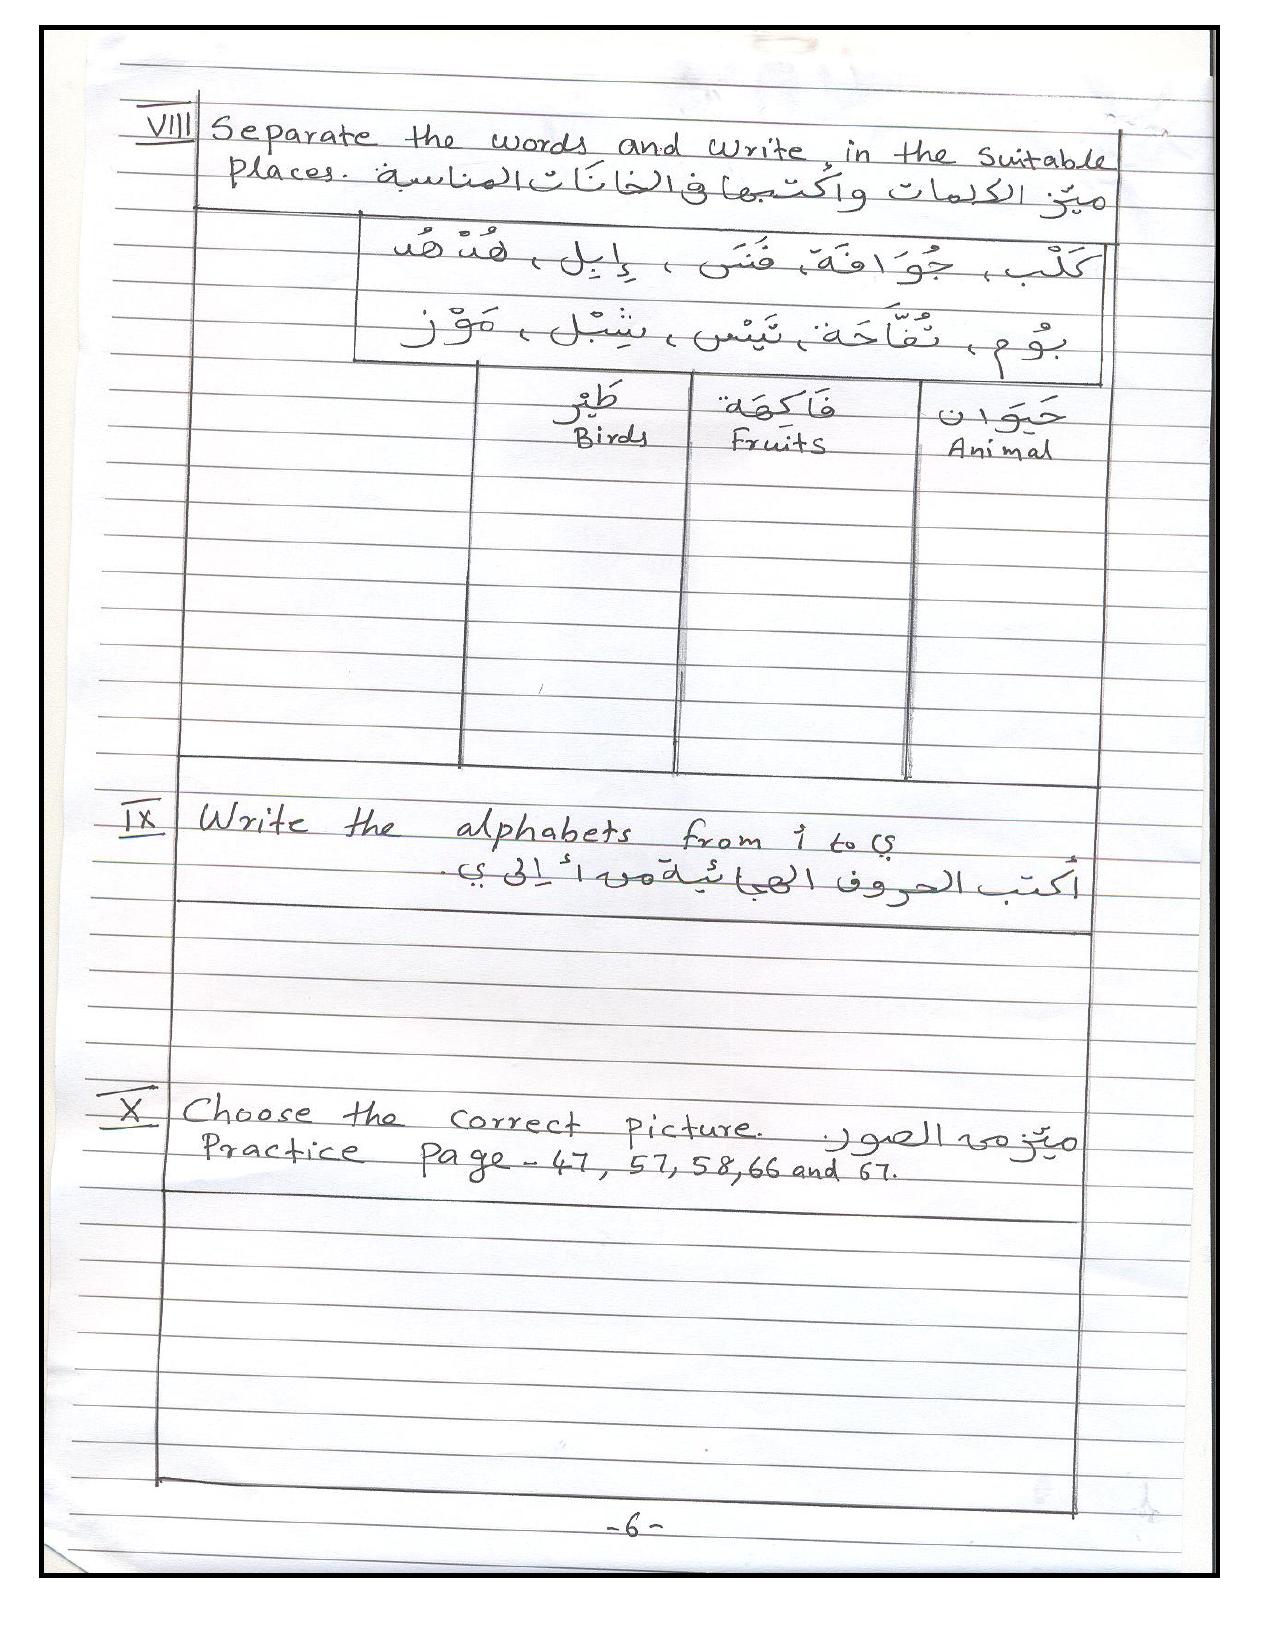 VIII Separate the words and write in the suitable
places. ميّز الكلمات واكتبها في الخانات المناسبة
كَلْب، جُوَافَة، فَنَس، إِبِل، هُدْهُد
بُوم، تُفَّاحَة، تَيْس، شِبْل، مَوْز
حَيَوَان فَاكِهَة طَيْر
Animal Fruits Birds
IX Write the alphabets from أ to ي
أكتب الحروف الهجائية من أ إلى ي.
X Choose the correct picture. ميّز من الصور
Practice page - 47, 57, 58, 66 and 67.
-6-